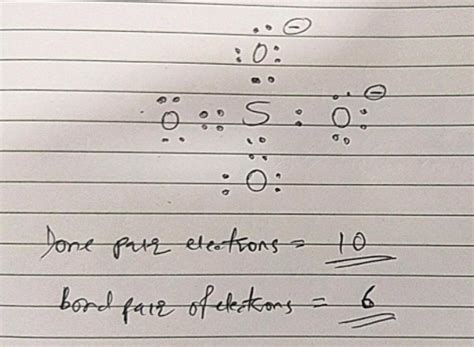 O ⊖
O S O ⊖
O
Lone pair electrons = 10
bond pair of electrons = 6